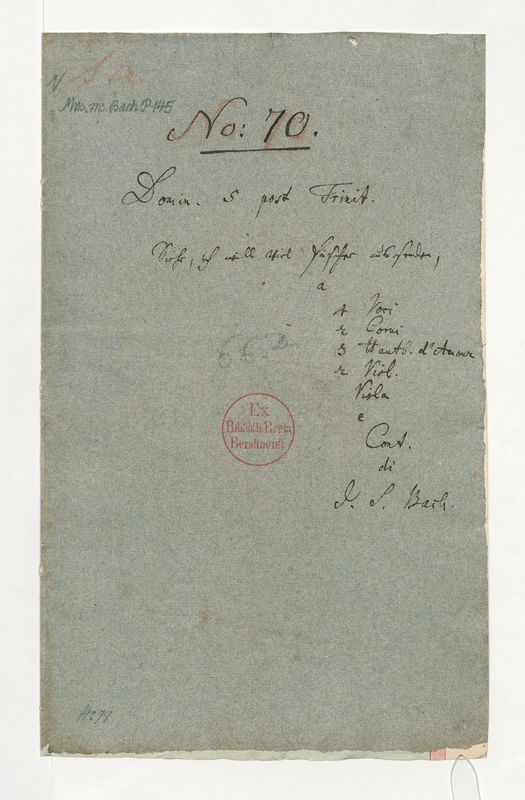 Mus. ms. Bach P 145
No: 70.
Domin. 5 post Trinit.
Siehe, ich will viel Fischer aussenden,
a
4 Voci
2 Corni
3 Hautb. d'Amour
2 Viol.
Viola
e
Cont.
di
J. S. Bach.
Ex
Biblioth. Regia
Berolinensi